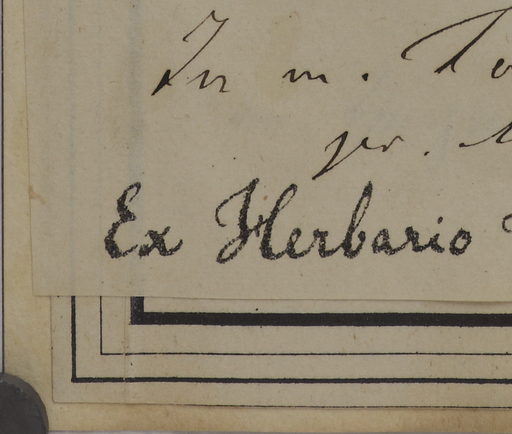 In m.
pr.
Ex Herbario